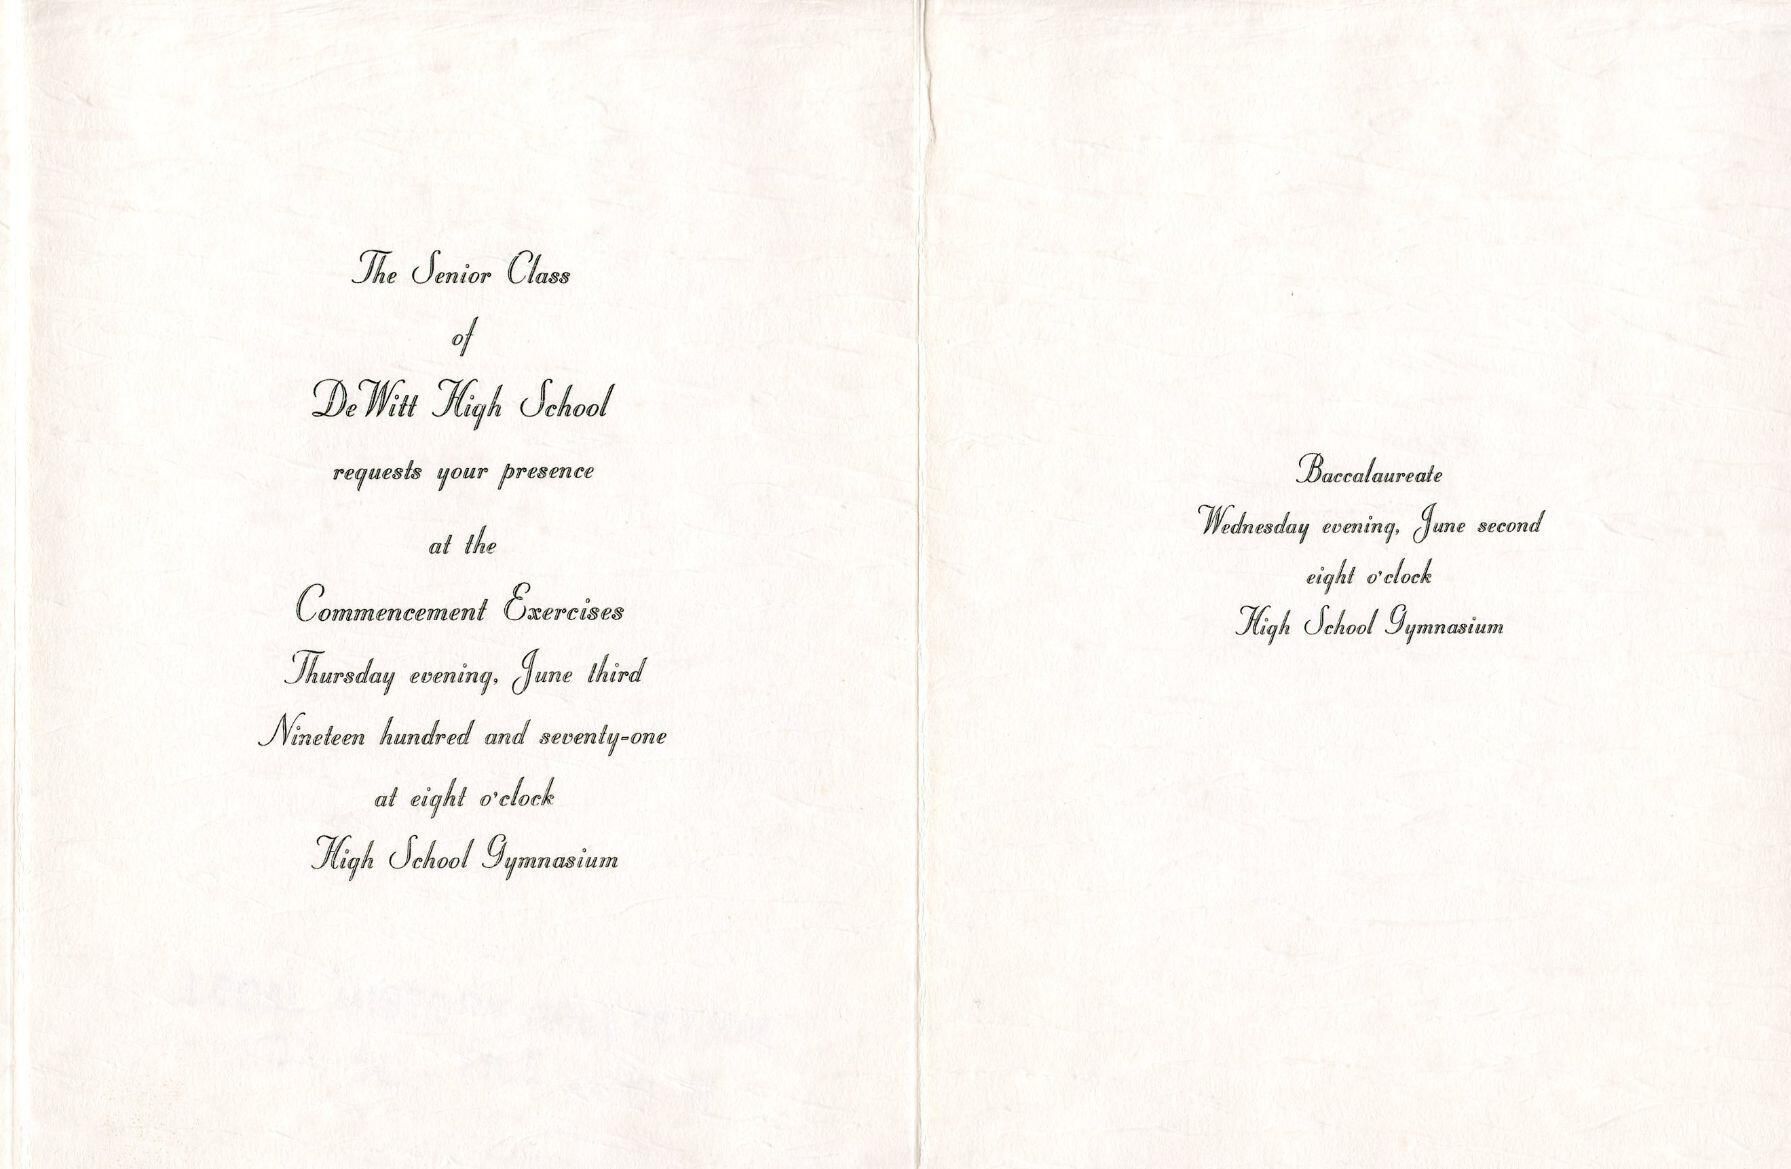 The Senior Class
of
DeWitt High School
requests your presence
at the
Commencement Exercises
Thursday evening, June third
Nineteen hundred and seventy-one
at eight o'clock
High School Gymnasium
Baccalaureate
Wednesday evening, June second
eight o'clock
High School Gymnasium